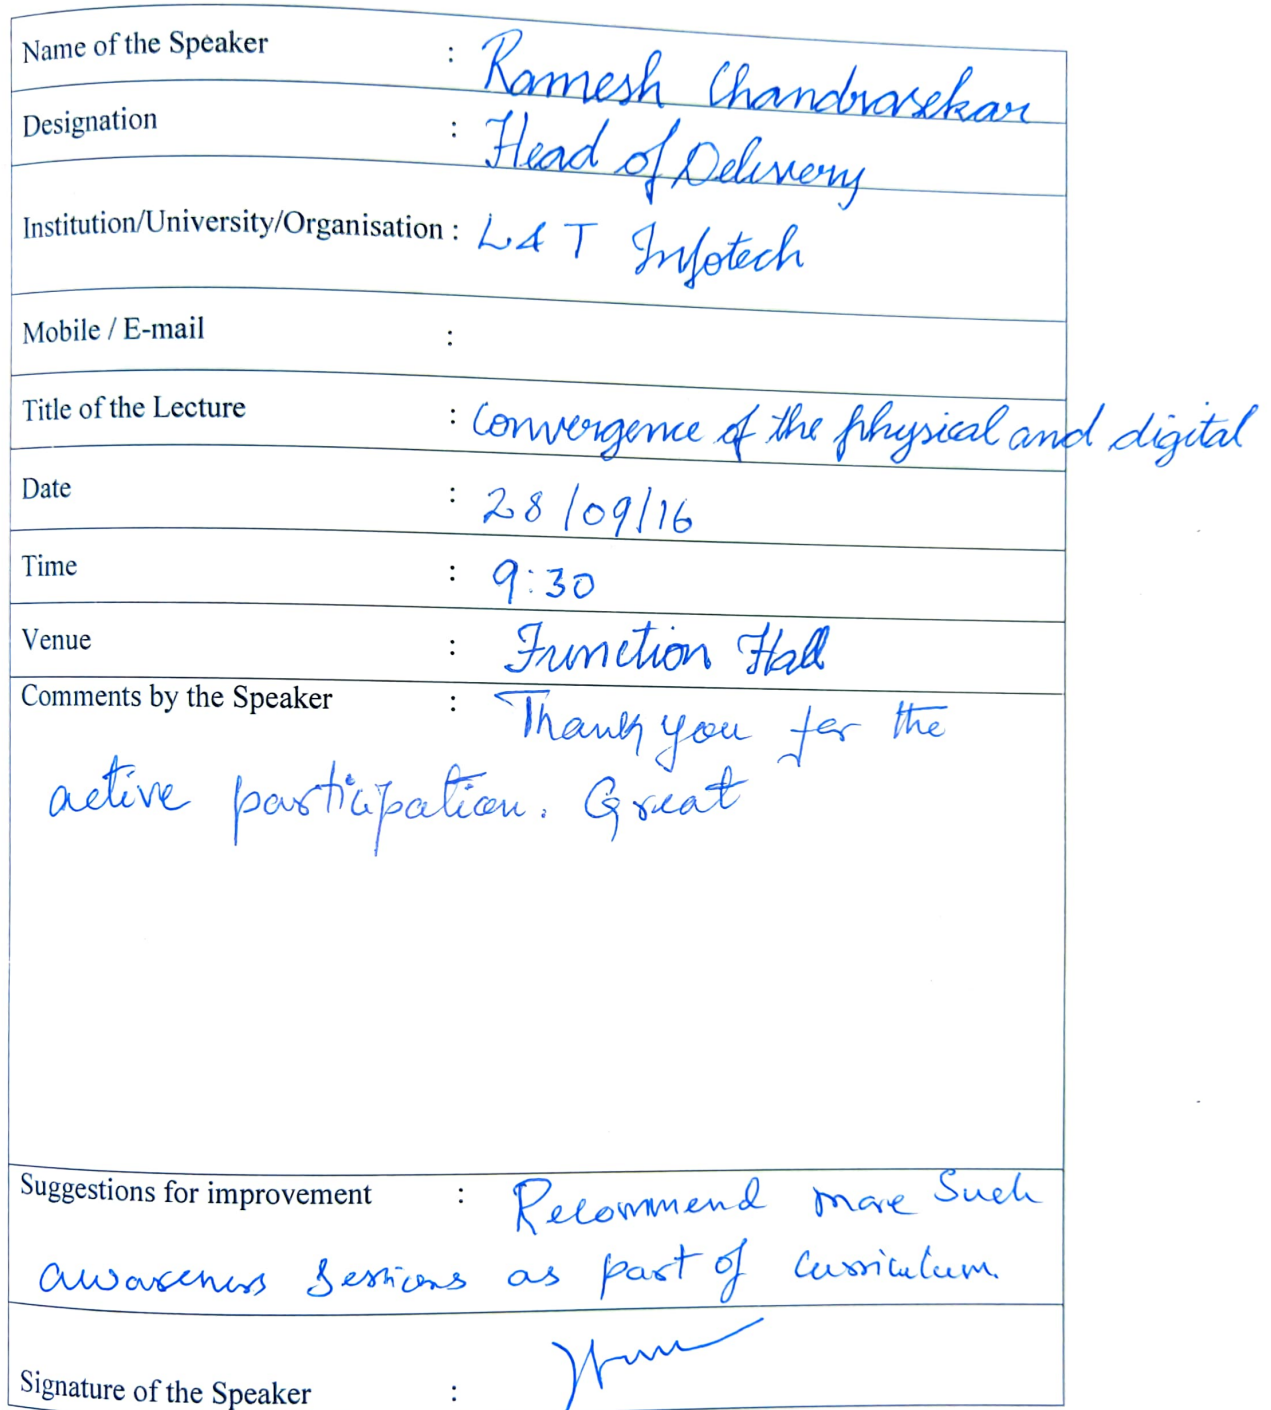 Name of the Speaker : Ramesh Chandrasekar
Designation : Head of Delivery
Institution/University/Organisation : L&T Infotech
Mobile / E-mail :
Title of the Lecture : Convergence of the physical and digital
Date : 28/09/16
Time : 9:30
Venue : Function Hall
Comments by the Speaker : Thank you for the
active participation. Great
Suggestions for improvement : Recommend more such
awareness sessions as part of curriculum.
Signature of the Speaker :